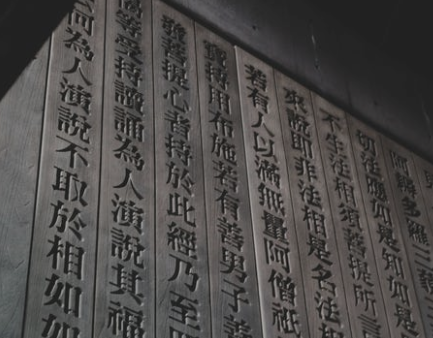 阿耨多羅三藐三
切法應如是知如是
不生法相須菩提所言
來說即非法相是名法相
若有人以滿無量阿僧祇
寶持用布施若有善男子善
發菩提心者持於此經乃至四
偈等受持讀誦為人演說其福
何為人演說不取於相如如